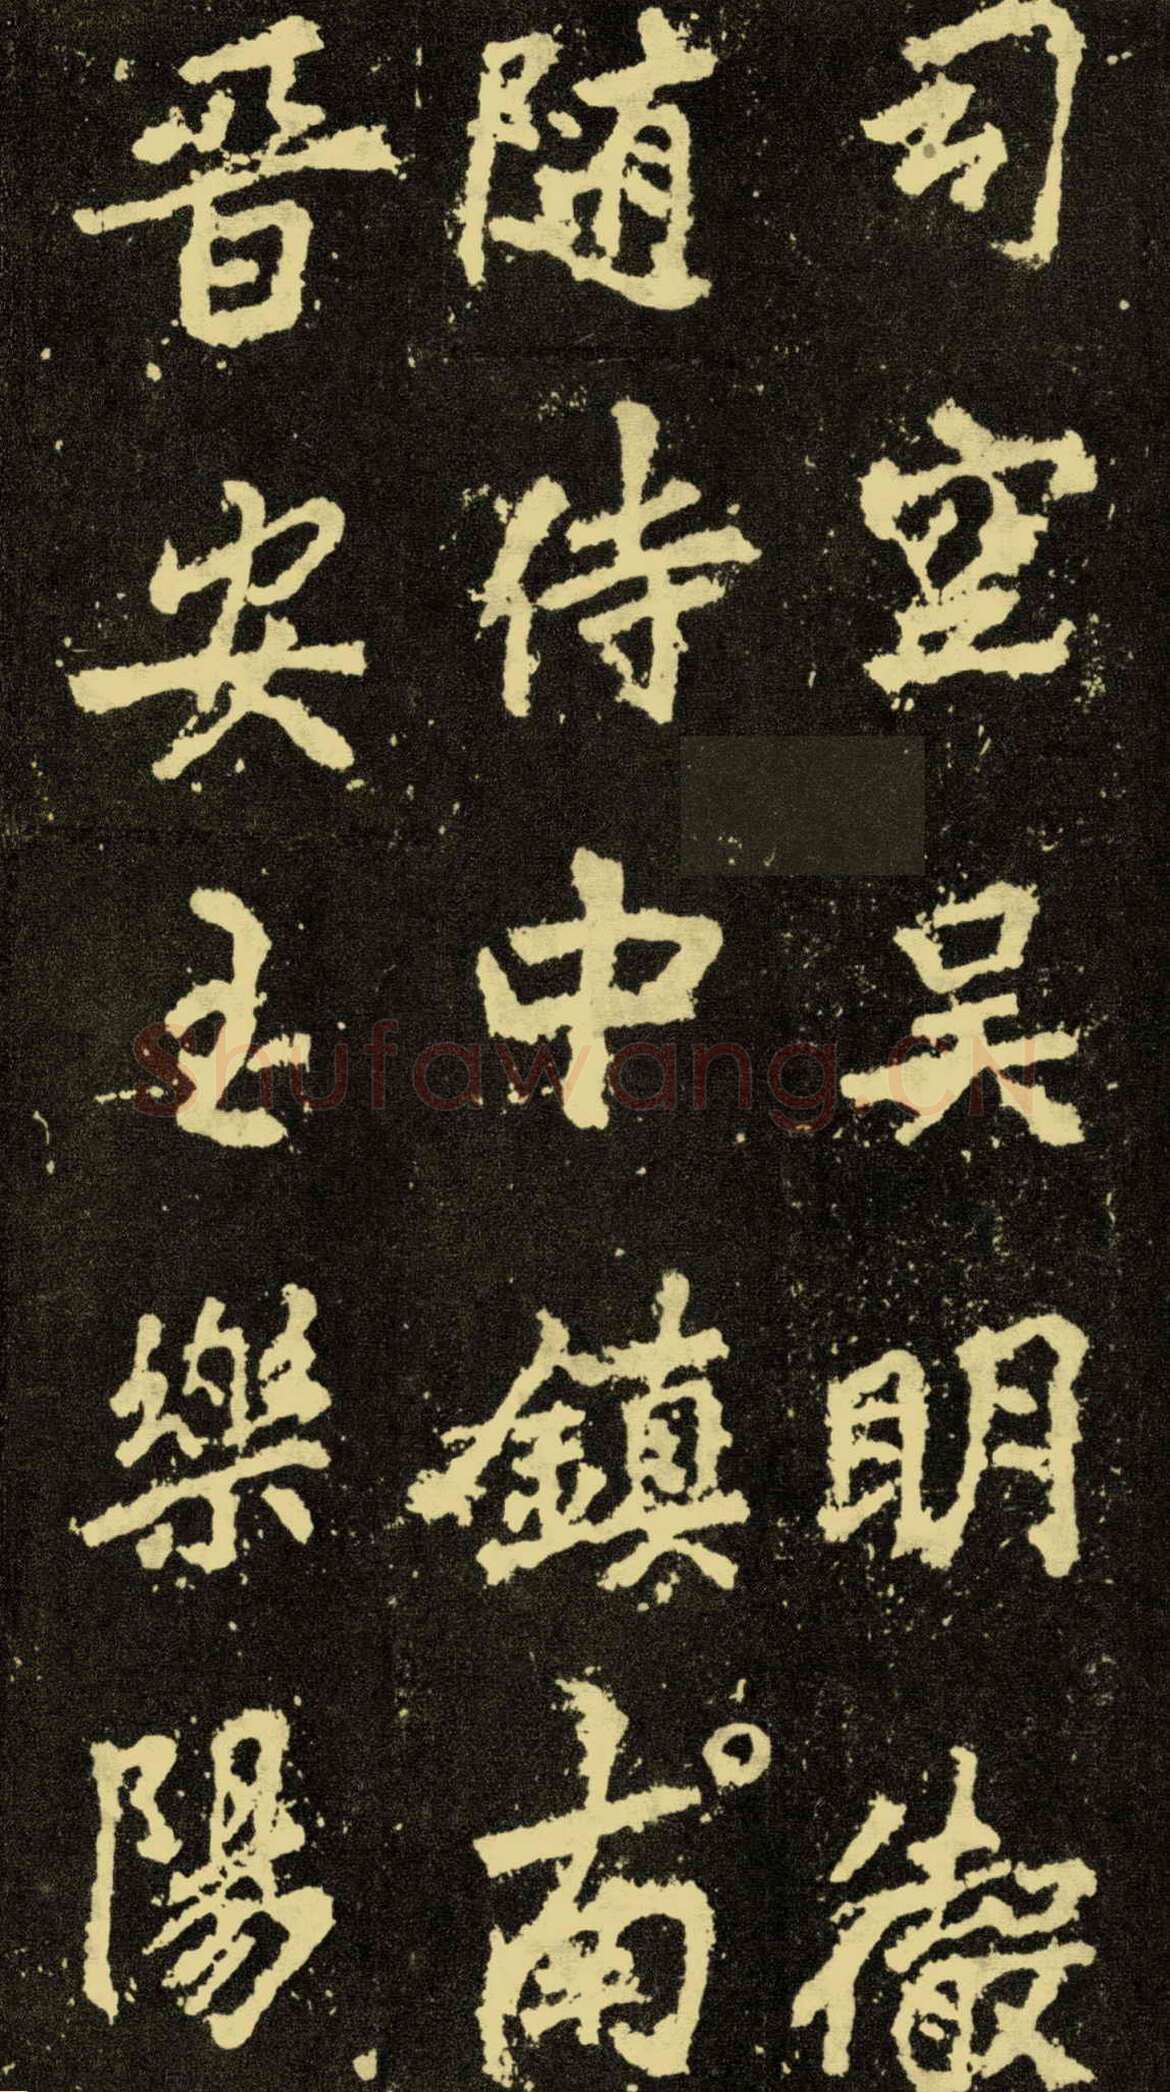 司空吳明徹
隨侍中鎮南
晉安王樂陽
Shufawang.CN